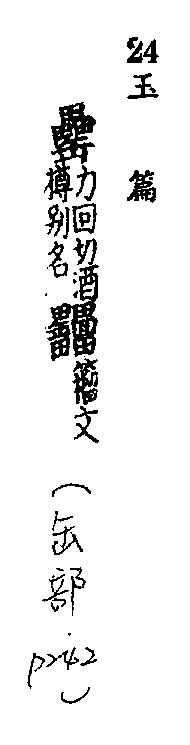 24
玉篇
罍 力回切酒
樽别名
籀文
(缶部.
p242)